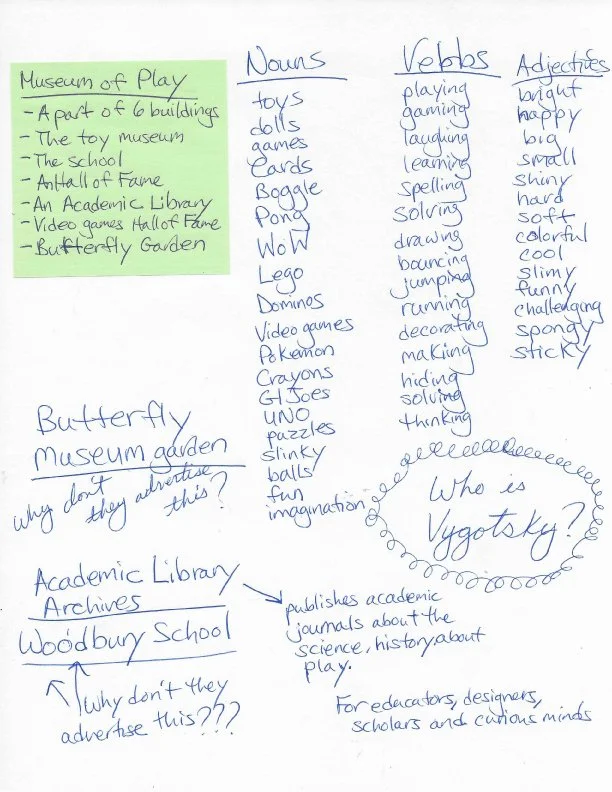 Museum of Play
- A part of 6 buildings
- The toy museum
- The school
- An Hall of Fame
- An Academic Library
- Video games Hall of Fame
- Butterfly Garden
Nouns
toys
dolls
games
Cards
Boggle
Pong
WoW
Lego
Dominos
Video games
Pokemon
Crayons
GI Joes
UNO
puzzles
slinky
balls
fun
imagination
Vebbs
playing
gaming
laughing
learning
spelling
solving
drawing
bouncing
jumping
running
decorating
making
hiding
solving
thinking
Adjectives
bright
happy
big
small
shiny
hard
soft
colorful
cool
slimy
funny
challenging
spongy
sticky
Butterfly
Museum garden
why don't
they advertise
this?
Who is
Vygotsky?
Academic Library
Archives
Woodbury School
Why don't they
advertise this???
publishes academic
journals about the
science, history, about
play.
For educators, designers,
scholars and curious minds